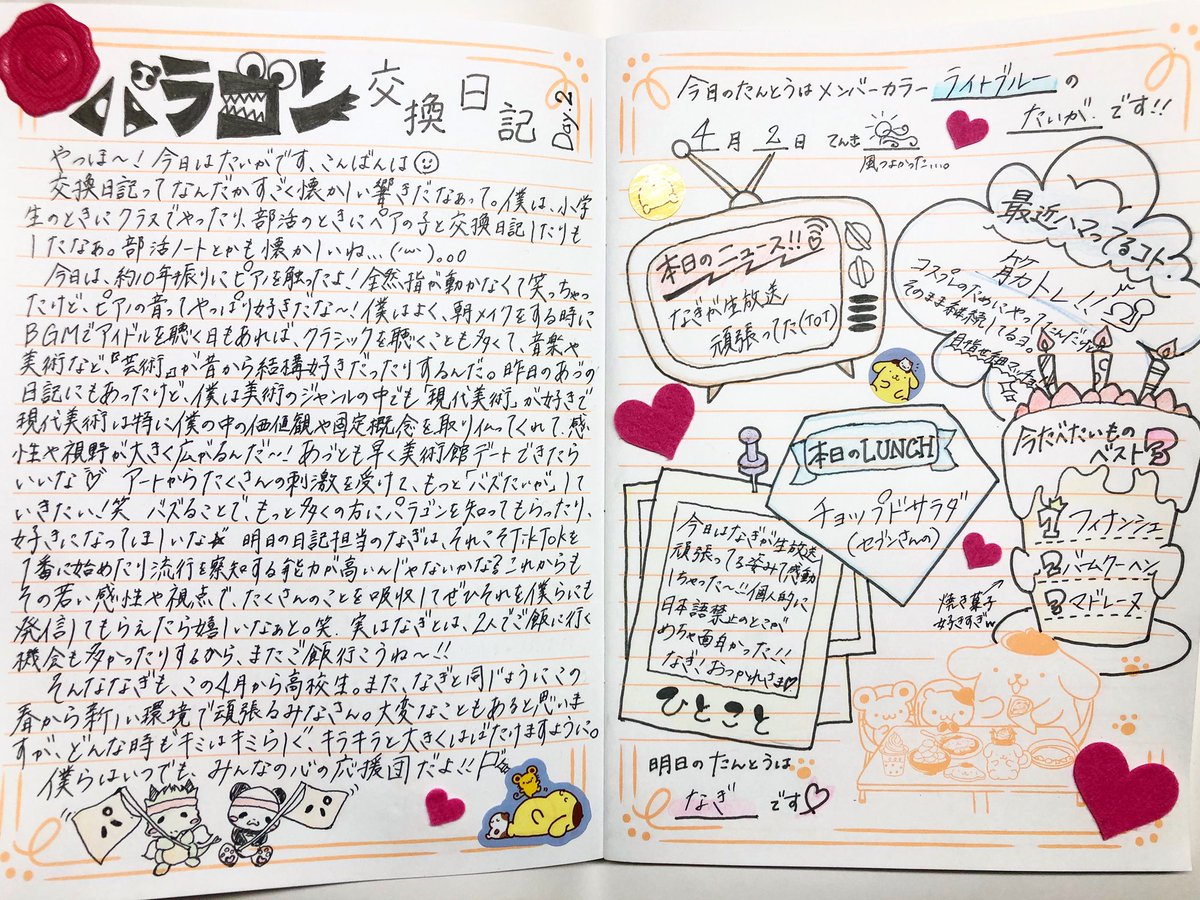 パラゴン
交換日記
Day.2
やっほ〜！今日はたいがです、こんばんは
交換日記ってなんだかすごく懐かしい響きだなぁって。僕は、小学
生のときにクラスでやったり、部活のときにペアの子と交換日記したりも
したなぁ。部活ノートとかも懐かしいね…
今日は、約10年振りにピアノを触ったよ！全然指が動かなくて笑っちゃっ
たけど、ピアノの音ってやっぱり好きだな〜！僕はよく、朝メイクをする時に
BGMでアイドルを聴く日もあれば、クラシックを聴くことも多くて、音楽や
美術など、『芸術』が昔から結構好きだったりするんだ。昨日のあづの
日記にもあったけど、僕は美術のジャンルの中でも「現代美術」が好きで
現代美術は特に僕の中の価値観や固定概念を取り払ってくれて、感
性や視野が大きく広がるんだ〜！あづとも早く美術館デートできたら
いいな♡ アートからたくさんの刺激を受けて、もっと「バズたいが」して
いきたい！笑 バズることで、もっと多くの方にパラゴンを知ってもらったり、
好きになってほしいな 明日の日記担当のなぎは、それこそTikTokを
1番に始めたり流行を察知する能力が高いんじゃないかなる これからも
その若い感性や視点で、たくさんのことを吸収してぜひそれを僕らにも
発信してもらえたら嬉しいなぁと。笑. 実はなぎとは、2人でご飯に行く
機会も多かったりするから、またご飯行こうね〜!!
そんななぎも、この4月から高校生。また、なぎと同じようにこの
春から新しい環境で頑張るみなさん。大変なこともあると思いま
すが、どんな時もキミはキミらしく、キラキラと大きくはばたけますように。
僕らはいつでも、みんなの心の応援団だよ!!
今日のたんとうはメンバーカラー ライトブルーの
たいが です!!
4月2日 てんき
風つよかった…。
本日のニュース!!
なぎが生放送
頑張ってた(ToT)
最近ハマってるコト
筋カトレ!!
コスプレのためにやってたんだけど
そのまま継続してる日。
目指せ細マッチョ
本日のLUNCH
チョップドサラダ
(セブンさんの)
今たべたいもの
ベスト3
1 フィナンシェ
2 バームクーヘン
3 マドレーヌ
焼き菓子
好きすぎw
今日はなぎが生放送
頑張ってる姿みて感動
しちゃった〜!!個人的に
日本語禁止のとこが
めちゃ面白かった!!
なぎ！おつかれさま♡
ひとこと
明日のたんとうは
なぎ です♡